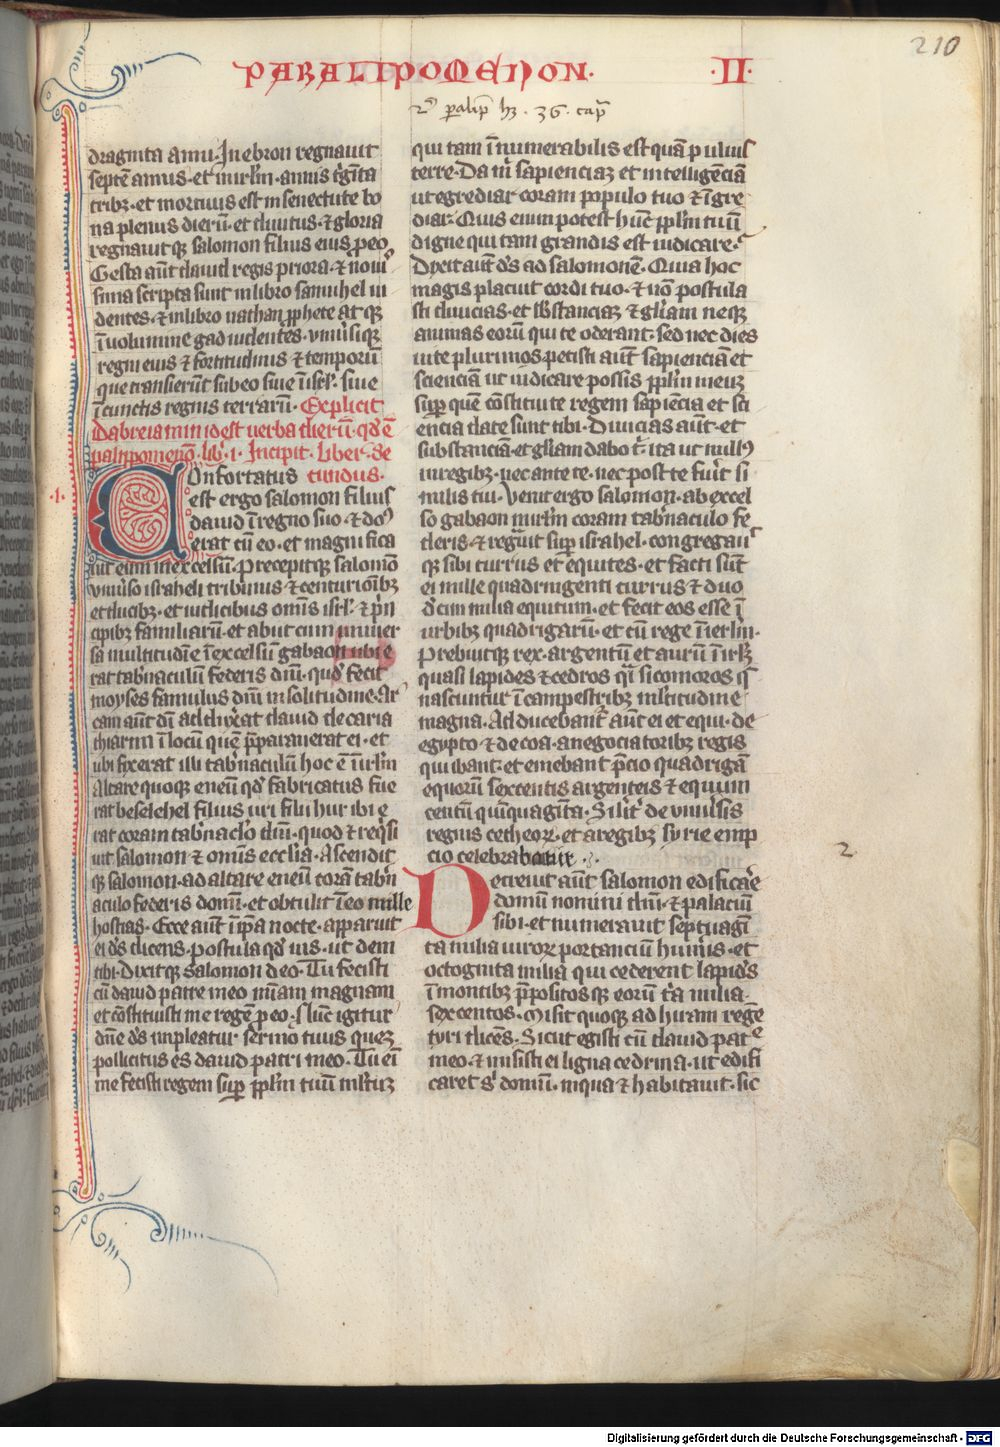 210
PARALIPOMENON. ·II·
2us paralip hz · 36 · capa
draginta annis. In ebron regnauit
septē annis· et in irl'm· annis t'gīta
tribꝫ· et mortuus est in senectute bo
na plenus dierū· et diuitiis· ⁊ gloria
regnauitqꝫ salomon filius eius p eo
Gesta aūt dauid regis priora· ⁊ noui
ssima scripta sunt in libro samuhel ui
dentes· ⁊ in libro nathan pphete atqꝫ
ī uolumine gad uidentes· vniu'siqꝫ
regni eius ⁊ fortitudinis ⁊ temporū
que transierūt sub eo siue ī isrl'· siue
ī cunctis regnis terrarū· Explicit
dabreiamin id est uerba dierū· qd' ē
palipomenō· lib'·i· Incipit· liber· se
cundus·
·1·
Confortatus
est ergo salomon filius
dauid ī regno suo· ⁊ do'
erat cū eo· et magnifica
uit eum in excelsū· Precepitqꝫ salomō
vniu'so israheli tribunis ⁊ centurioībꝫ
et ducibꝫ· et iudicibus omīs isrl'· ⁊ prīn
cipibꝫ familiarū· et abiit cum uniuer
sa multitudīe ī excelsū gabaon ubi e
rat tab'naculū federis dīni· quod' fecit
moyses famulus dīni in solitudine· Ar
cam aūt dī adduxerat dauid de caria
thiarim ī locū quē p̄parauerat ei· et
ubi fixerat illi tab'naculū hoc ē ī irl'm
Altare quoqꝫ eneū qd' fabricatus fue
rat beselehel filius uri filii hur ibi e
rat coram tab'naclo dīni· quod ⁊ req'si
uit salomon ⁊ omīs eccl'ia· Ascendit
qꝫ salomon· ad altare eneū corā tab'n
aculo federis domī· et obtulit ī eo mille
hostias· Ecce aūt ī ip̄a nocte· apparuit
ei d's dicens· postula qd' uis· ut dem
tibi· Dixitqꝫ salomon deo· Tu fecisti
cū dauid patre meo mīam magnam
et cōstituisti me regē p eo· Nunc igitur
dn̄e d's impleatur sermo tuus quem
pollicitus es dauid patri meo· Tu eī
me fecisti regem sup ppl'm tuū ml'tuꝫ
qui tam īnumerabilis est quā puluis
terre· Da m' sapienciaꝫ et intelligēciā
ut egrediar coram populo tuo ⁊ īgre
diar· Quis enim potest hūc ppl'm tuū
digne qui tam grandis est iudicare·
Dixit aūt d's ad salomonē· Quia hoc
magis placuit cordi tuo· ⁊ nō postula
sti diuicias· et sb'stanciaꝫ ⁊ gl'iam neqꝫ
animas eorū qui te oderant· sed nec dies
uite plurimos petisti aūt sapienciā et
scienciā ut iudicare possis ppl'm meuꝫ
sup quē cōstitui te regem sapiēcia et sci
encia date sunt tibi· Diuicias aūt· et
substanciā· et gl'iam dabo t'· ita ut null'
in regibꝫ· nec ante te· nec post te fu'it si
milis tui· Venit ergo salomon· ab excel
so gabaon in irl'm coram tab'naculo fe
deris· ⁊ regnauit sup israhel· congregauit
qꝫ sibi currus et equites· et facti sūt
ei mille quadringenti currus ⁊ duo
d'cim milia equitum· et fecit eos esse ī
urbibꝫ quadrigarū· et cū rege ī ierl'm·
Prebuitqꝫ rex· argentū et aurū ī irl'm
quasi lapides ⁊ cedros q'i sicomoros q'
nascuntur ī campestribꝫ ml'titudine
magna· Adducebant' aūt ei et equi· de
egypto ⁊ de coa· a negociatoribꝫ regis
qui ibant· et emebant p̄cio quadrigā
equorū sexcentis argenteis ⁊ equum
centū quīquagīta· Sil'it' de vniu'sis
regnis cetheoꝝ· et a regibꝫ syrie emp
cio celebrabatur
2
Decreuit aūt salomon edificare
domū nomini dīni· ⁊ palaciū
sibi· et numerauit septuagī
ta milia uiroꝝ portanciū hum'is· et
octoginta milia qui cederent lapid's
ī montibꝫ p̄positosqꝫ eorū t'a milia·
sexcentos· Misit quoqꝫ ad hiram regē
tyri dicēs· Sicut egisti cū dauid patre
meo· ⁊ misisti ei ligna cedrina· ut edifi
caret s' domū· in qua ⁊ habitauit· sic
Digitalisierung gefördert durch die Deutsche Forschungsgemeinschaft - DFG